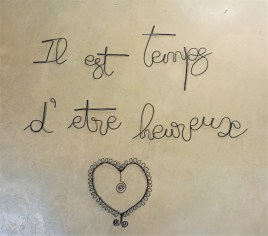 Il est temps
d'etre heureux